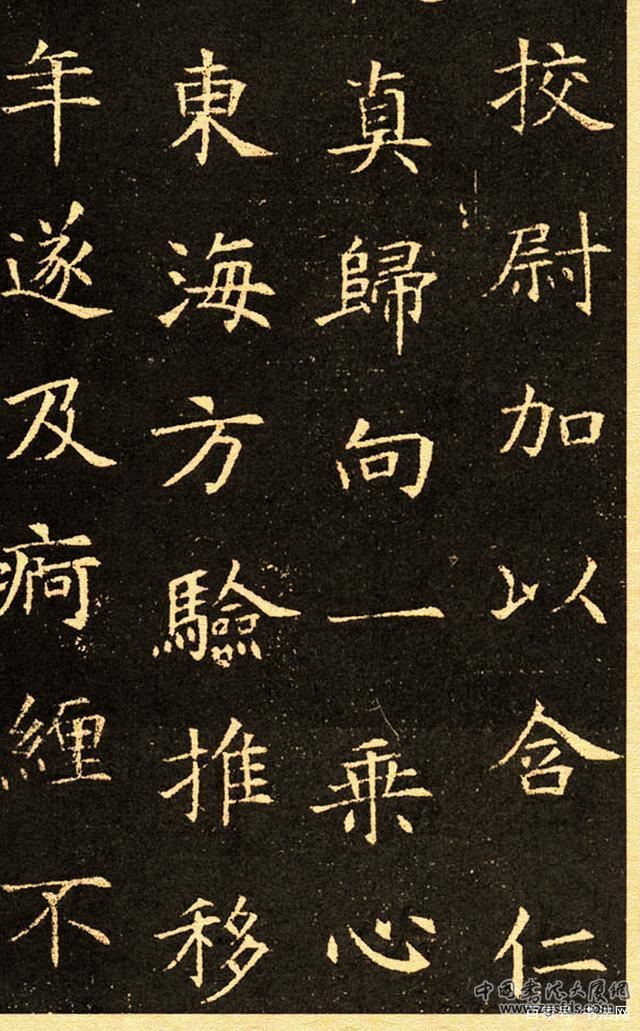 挍尉加以含仁
真歸向一乗心
東海方驗推移
年遂及痾纏不
中国书法大厦网
www.zgsfds.com